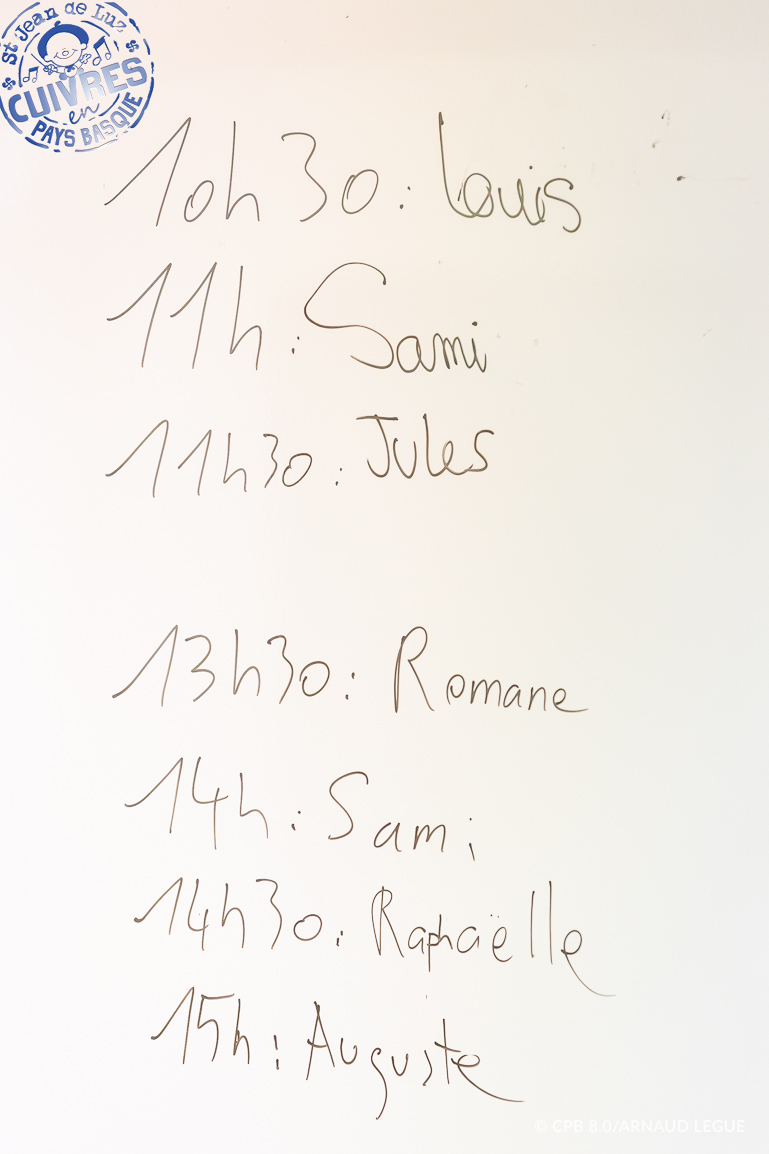 St Jean de Luz
CUIVRES
en
PAYS BASQUE
10h30: Louis
11h: Sami
11h30: Jules
13h30: Romane
14h: Sami
14h30: Raphaëlle
15h: Auguste
© CPB 8.0/ARNAUD LEGUE